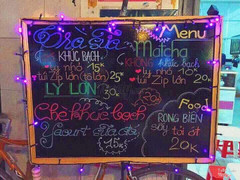 Trà sữa
KHÚC BẠCH
ly nhỏ 15K
túi Zip lớn 25K
LY LỚN 30K
Chè khúc bạch
Yaourt
15K
Menu
Matcha
KHÔNG khúc bạch
ly nhỏ 10K
túi Zip lớn 20K
Food
RONG BIỂN
sấy tỏi ớt
20K